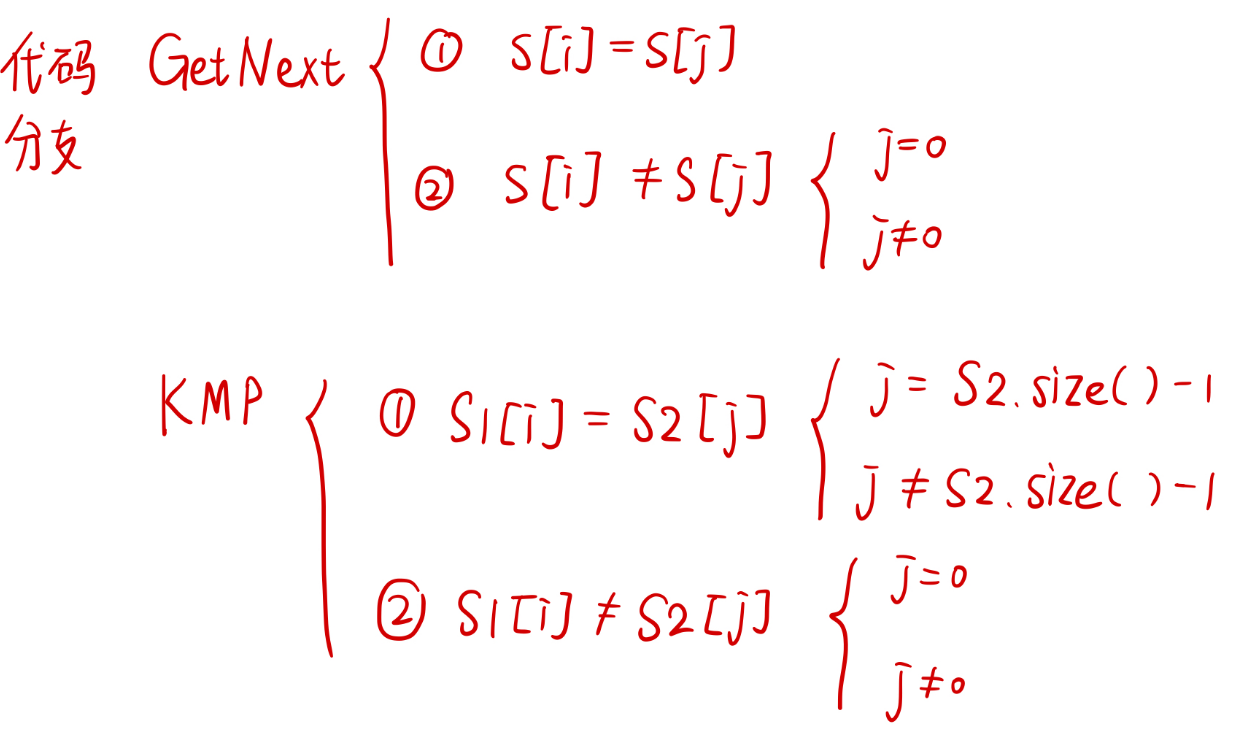 代码 GetNext ① S[i]=S[j]
分支
② S[i]≠S[j]
j=0
j≠0
KMP ① S1[i]=S2[j]
j=S2.size()-1
j≠S2.size()-1
② S1[i]≠S2[j]
j=0
j≠0